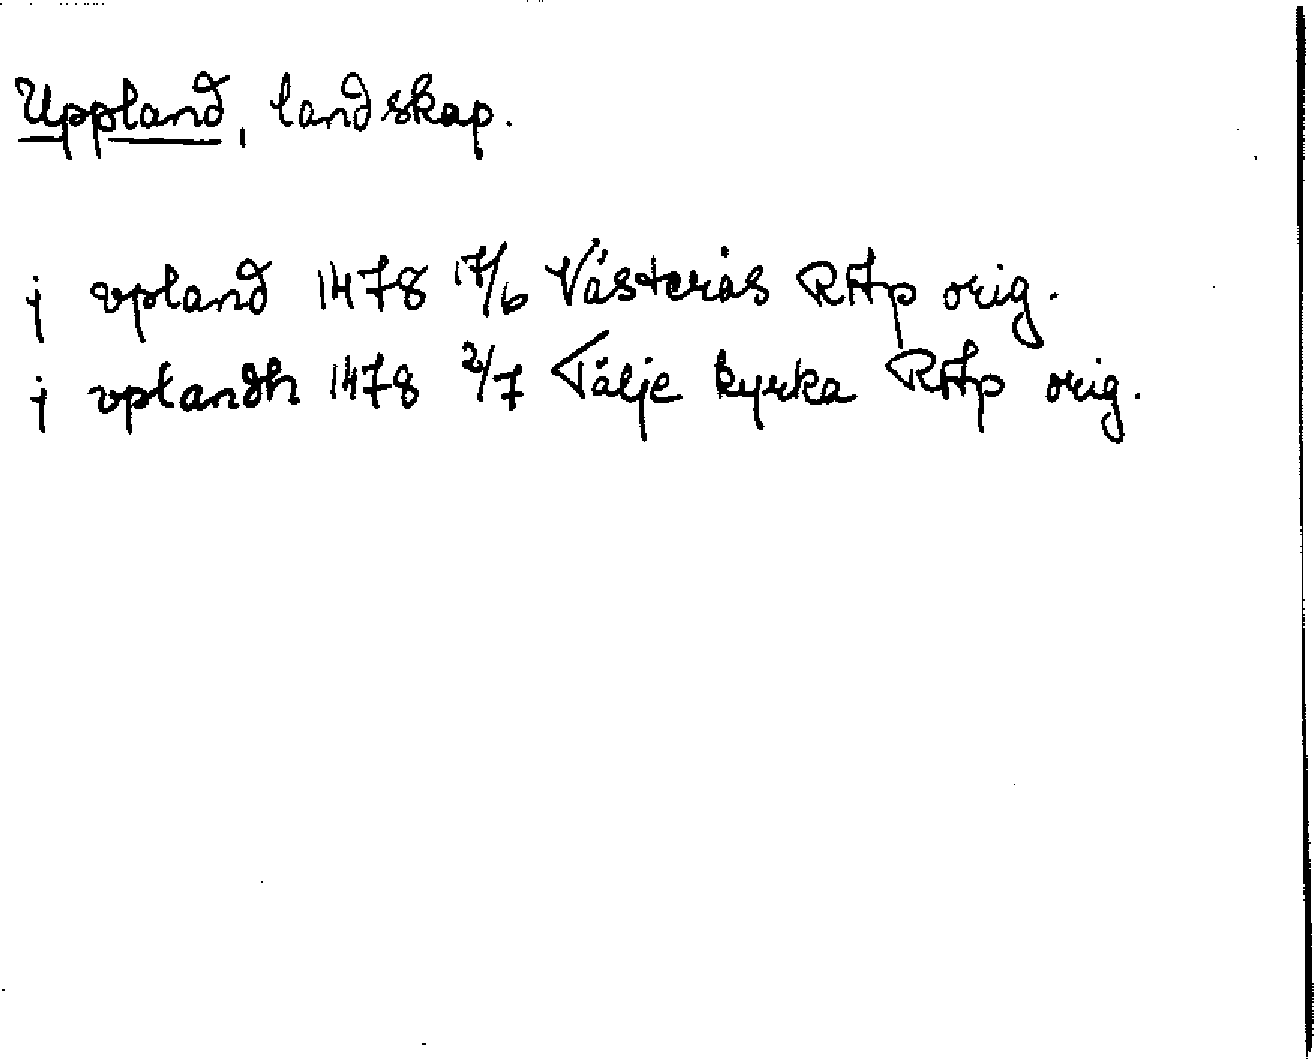 Uppland, landskap.
j vpland 1478 17/6 Västerås RAp orig.
j vplandh 1478 2/7 Tälje kyrka RAp orig.